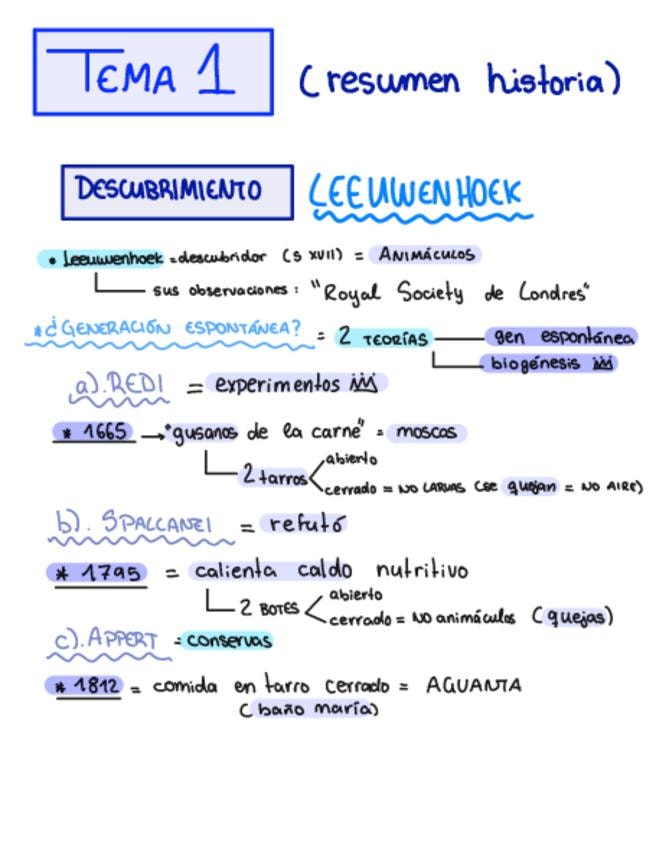 TEMA 1 (resumen historia)
DESCUBRIMIENTO LEEUWENHOEK
• Leeuwenhoek = descubridor (s XVII) = ANIMÁCULOS
sus observaciones: "Royal Society de Londres"
* ¿GENERACIÓN ESPONTÁNEA? = 2 TEORÍAS gen espontánea
biogénesis
a). REDI = experimentos
* 1665 → "gusanos de la carne" = moscas
abierto
2 tarros
cerrado = NO LARVAS (se quejan = NO AIRE)
b). SPALLANZI = refutó
* 1795 = calienta caldo nutritivo
abierto
2 BOTES
cerrado = NO animáculos (quejas)
c). APPERT = conservas
* 1812 = comida en tarro cerrado = AGUANTA
(baño maría)